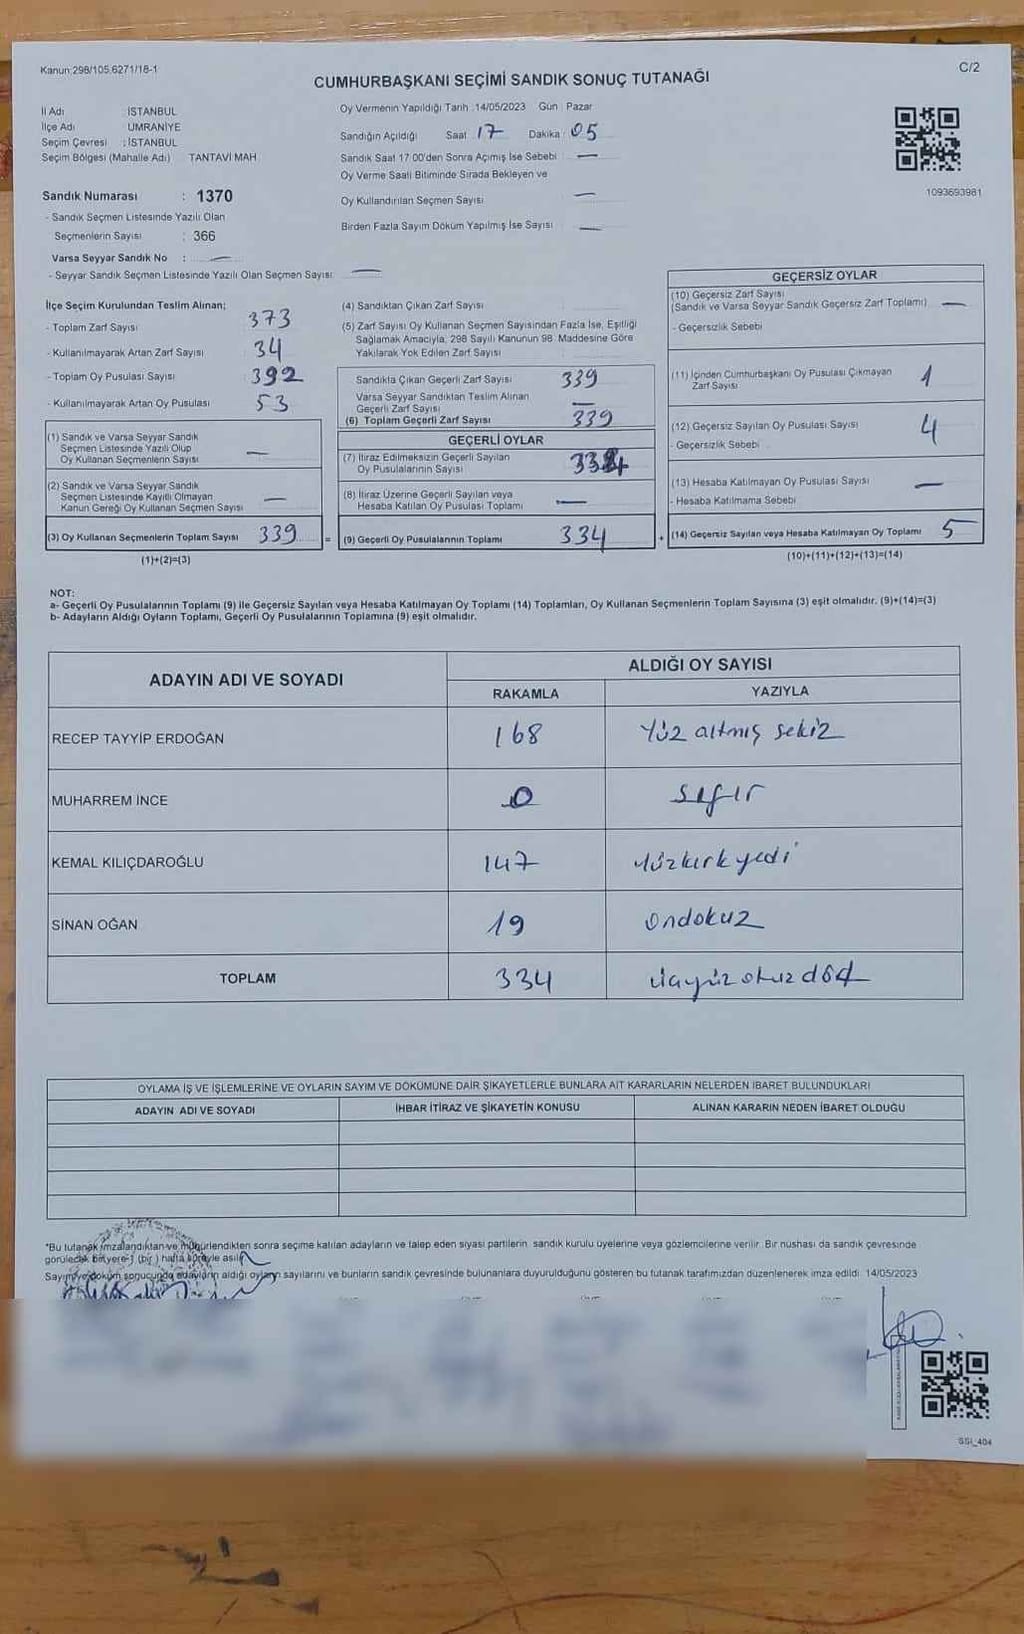 Kanun:298/105,6271/18-1
C/2
CUMHURBAŞKANI SEÇİMİ SANDIK SONUÇ TUTANAĞI
İl Adı : İSTANBUL
İlçe Adı : ÜMRANİYE
Seçim Çevresi : İSTANBUL
Seçim Bölgesi (Mahalle Adı) TANTAVİ MAH.
Sandık Numarası : 1370
- Sandık Seçmen Listesinde Yazılı Olan
Seçmenlerin Sayısı : 366
Varsa Seyyar Sandık No : —
- Seyyar Sandık Seçmen Listesinde Yazılı Olan Seçmen Sayısı: —
Oy Vermenin Yapıldığı Tarih :14/05/2023 Gün : Pazar
Sandığın Açıldığı Saat : 17 Dakika : 05
Sandık Saat 17:00'den Sonra Açılmış İse Sebebi : —
Oy Verme Saati Bitiminde Sırada Bekleyen ve
Oy Kullandırılan Seçmen Sayısı : —
Birden Fazla Sayım Döküm Yapılmış İse Sayısı : —
1093693981
İlçe Seçim Kurulundan Teslim Alınan;
- Toplam Zarf Sayısı : 373
- Kullanılmayarak Artan Zarf Sayısı : 34
- Toplam Oy Pusulası Sayısı : 392
- Kullanılmayarak Artan Oy Pusulası : 53
(1) Sandık ve Varsa Seyyar Sandık
Seçmen Listesinde Yazılı Olup
Oy Kullanan Seçmenlerin Sayısı —
(2) Sandık ve Varsa Seyyar Sandık
Seçmen Listesinde Kayıtlı Olmayan
Kanun Gereği Oy Kullanan Seçmen Sayısı —
(3) Oy Kullanan Seçmenlerin Toplam Sayısı 339
(1)+(2)=(3)
=
(4) Sandıktan Çıkan Zarf Sayısı :
(5) Zarf Sayısı Oy Kullanan Seçmen Sayısından Fazla İse, Eşitliği
Sağlamak Amacıyla, 298 Sayılı Kanunun 98. Maddesine Göre
Yakılarak Yok Edilen Zarf Sayısı :
Sandıkta Çıkan Geçerli Zarf Sayısı 339
Varsa Seyyar Sandıktan Teslim Alınan
Geçerli Zarf Sayısı —
(6) Toplam Geçerli Zarf Sayısı 339
GEÇERLİ OYLAR
(7) İtiraz Edilmeksizin Geçerli Sayılan
Oy Pusulalarının Sayısı 334
(8) İtiraz Üzerine Geçerli Sayılan veya
Hesaba Katılan Oy Pusulası Toplamı —
(9) Geçerli Oy Pusulalarının Toplamı 334
+
GEÇERSİZ OYLAR
(10) Geçersiz Zarf Sayısı
(Sandık ve Varsa Seyyar Sandık Geçersiz Zarf Toplamı) —
- Geçersizlik Sebebi
(11) İçinden Cumhurbaşkanı Oy Pusulası Çıkmayan
Zarf Sayısı 1
(12) Geçersiz Sayılan Oy Pusulası Sayısı 4
- Geçersizlik Sebebi
(13) Hesaba Katılmayan Oy Pusulası Sayısı —
- Hesaba Katılmama Sebebi
(14) Geçersiz Sayılan veya Hesaba Katılmayan Oy Toplamı 5
(10)+(11)+(12)+(13)=(14)
NOT:
a- Geçerli Oy Pusulalarının Toplamı (9) ile Geçersiz Sayılan veya Hesaba Katılmayan Oy Toplamı (14) Toplamları, Oy Kullanan Seçmenlerin Toplam Sayısına (3) eşit olmalıdır. (9)+(14)=(3)
b- Adayların Aldığı Oyların Toplamı, Geçerli Oy Pusulalarının Toplamına (9) eşit olmalıdır.
ADAYIN ADI VE SOYADI ALDIĞI OY SAYISI
RAKAMLA YAZIYLA
RECEP TAYYİP ERDOĞAN 168 Yüz altmış sekiz
MUHARREM İNCE 0 Sıfır
KEMAL KILIÇDAROĞLU 147 Yüzkırkyedi
SİNAN OĞAN 19 Ondokuz
TOPLAM 334 üçyüz otuz dört
OYLAMA İŞ VE İŞLEMLERİNE VE OYLARIN SAYIM VE DÖKÜMÜNE DAİR ŞİKAYETLERLE BUNLARA AİT KARARLARIN NELERDEN İBARET BULUNDUKLARI
ADAYIN ADI VE SOYADI İHBAR İTİRAZ VE ŞİKAYETİN KONUSU ALINAN KARARIN NEDEN İBARET OLDUĞU
*Bu tutanak imzalandıktan ve mühürlendikten sonra seçime katılan adayların ve talep eden siyasi partilerin sandık kurulu üyelerine veya gözlemcilerine verilir. Bir nüshası da sandık çevresinde
görülecek bir yere 1 (bir) hafta süreyle asılır.
Sayım ve döküm sonucunda adayların aldığı oyların sayılarını ve bunların sandık çevresinde bulunanlara duyurulduğunu gösteren bu tutanak tarafımızdan düzenlenerek imza edildi. 14/05/2023
SSI_404